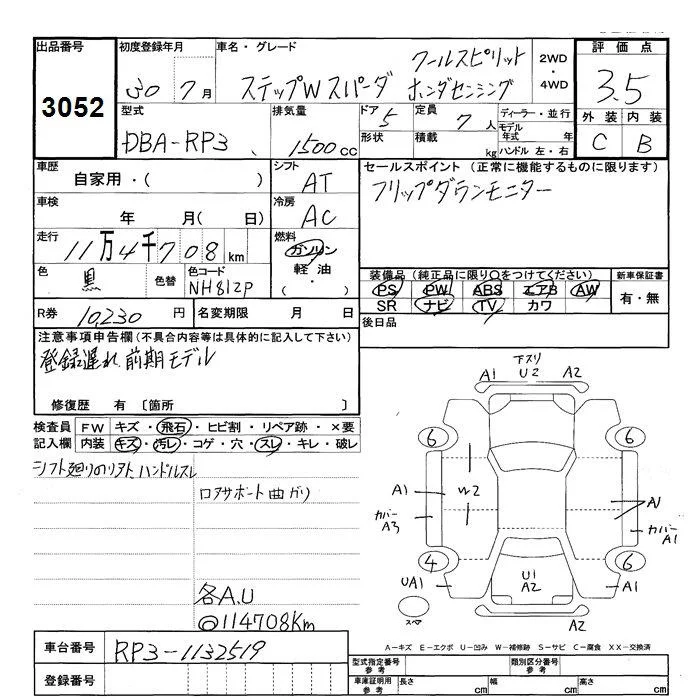 出品番号 初度登録年月 車名・グレード 2WD・4WD 評価点
3052
30 7月 ステップWスパーダ クールスピリット ホンダセンシング 3.5
型式 排気量 ドア 定員 ディーラー・並行 外装 内装
DBA-RP3 1500cc 5 7人 モデル年式 年 C B
形状 積載 kg ハンドル 左・右
車歴 シフト セールスポイント(正常に機能するものに限ります)
自家用・( ) AT フリップダウンモニター
車検 冷房
年 月( 日) AC
走行 燃料
11万4千708km ガソリン
軽油
・( )
色 色替 色コード 装備品(純正品に限り○をつけてください) 新車保証書
黒 NH812P PS PW ABS エアB AW 有・無
SR ナビ TV カワ
R券 10,230円 名変期限 月 日 後日品
注意事項申告欄(不具合内容等は具体的に記入して下さい)
登録遅れ 前期モデル
修復歴 有〔箇所 〕
検査員 FW キズ・飛石・ヒビ割・リペア跡・×要
記入欄 内装 キズ・汚レ・コゲ・穴・スレ・キレ・破レ
シフト廻りのリアト、ハンドルスレ
ロアサポート曲がり
各A.U
◎114708Km
下スリ
A1 U2 A2
6 6
A1 W2 A1
カバーA3 カバーA1
4 6
UA1 U1 A2 A1
スペア A2
A-キズ E-エクボ U-凹み W-補修跡 S-サビ C-腐食 XX-交換済
車台番号 RP3-1132519
登録番号
型式指定番号 参考 類別区分番号 参考
車庫証明用 参考 長さ cm 幅 cm 高さ cm